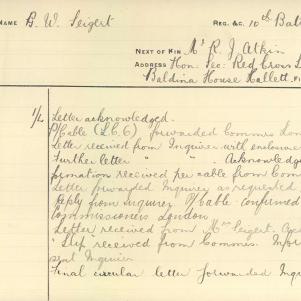 NAME B. W. Seigert REG. &C. 10th Bat
NEXT OF KIN Mr R. J. Atkin
ADDRESS Hon: Sec: Red Cross
Baldina House Hallett
1/4 Letter acknowledged.
P/Cable (L.C.6) forwarded Commrs Lon
Letter received from Inquirer with enclosure
Further letter " " Acknowledged
formation received per cable from Com
Letter forwarded Inquirer as requested
Reply from Inquirer P/Cable confirmed
Commissioners London
Letter received from Mrs Seigert.
"Slip" received from Commrs. Infor
sent Inquirer
Final circular letter forwarded Inqu